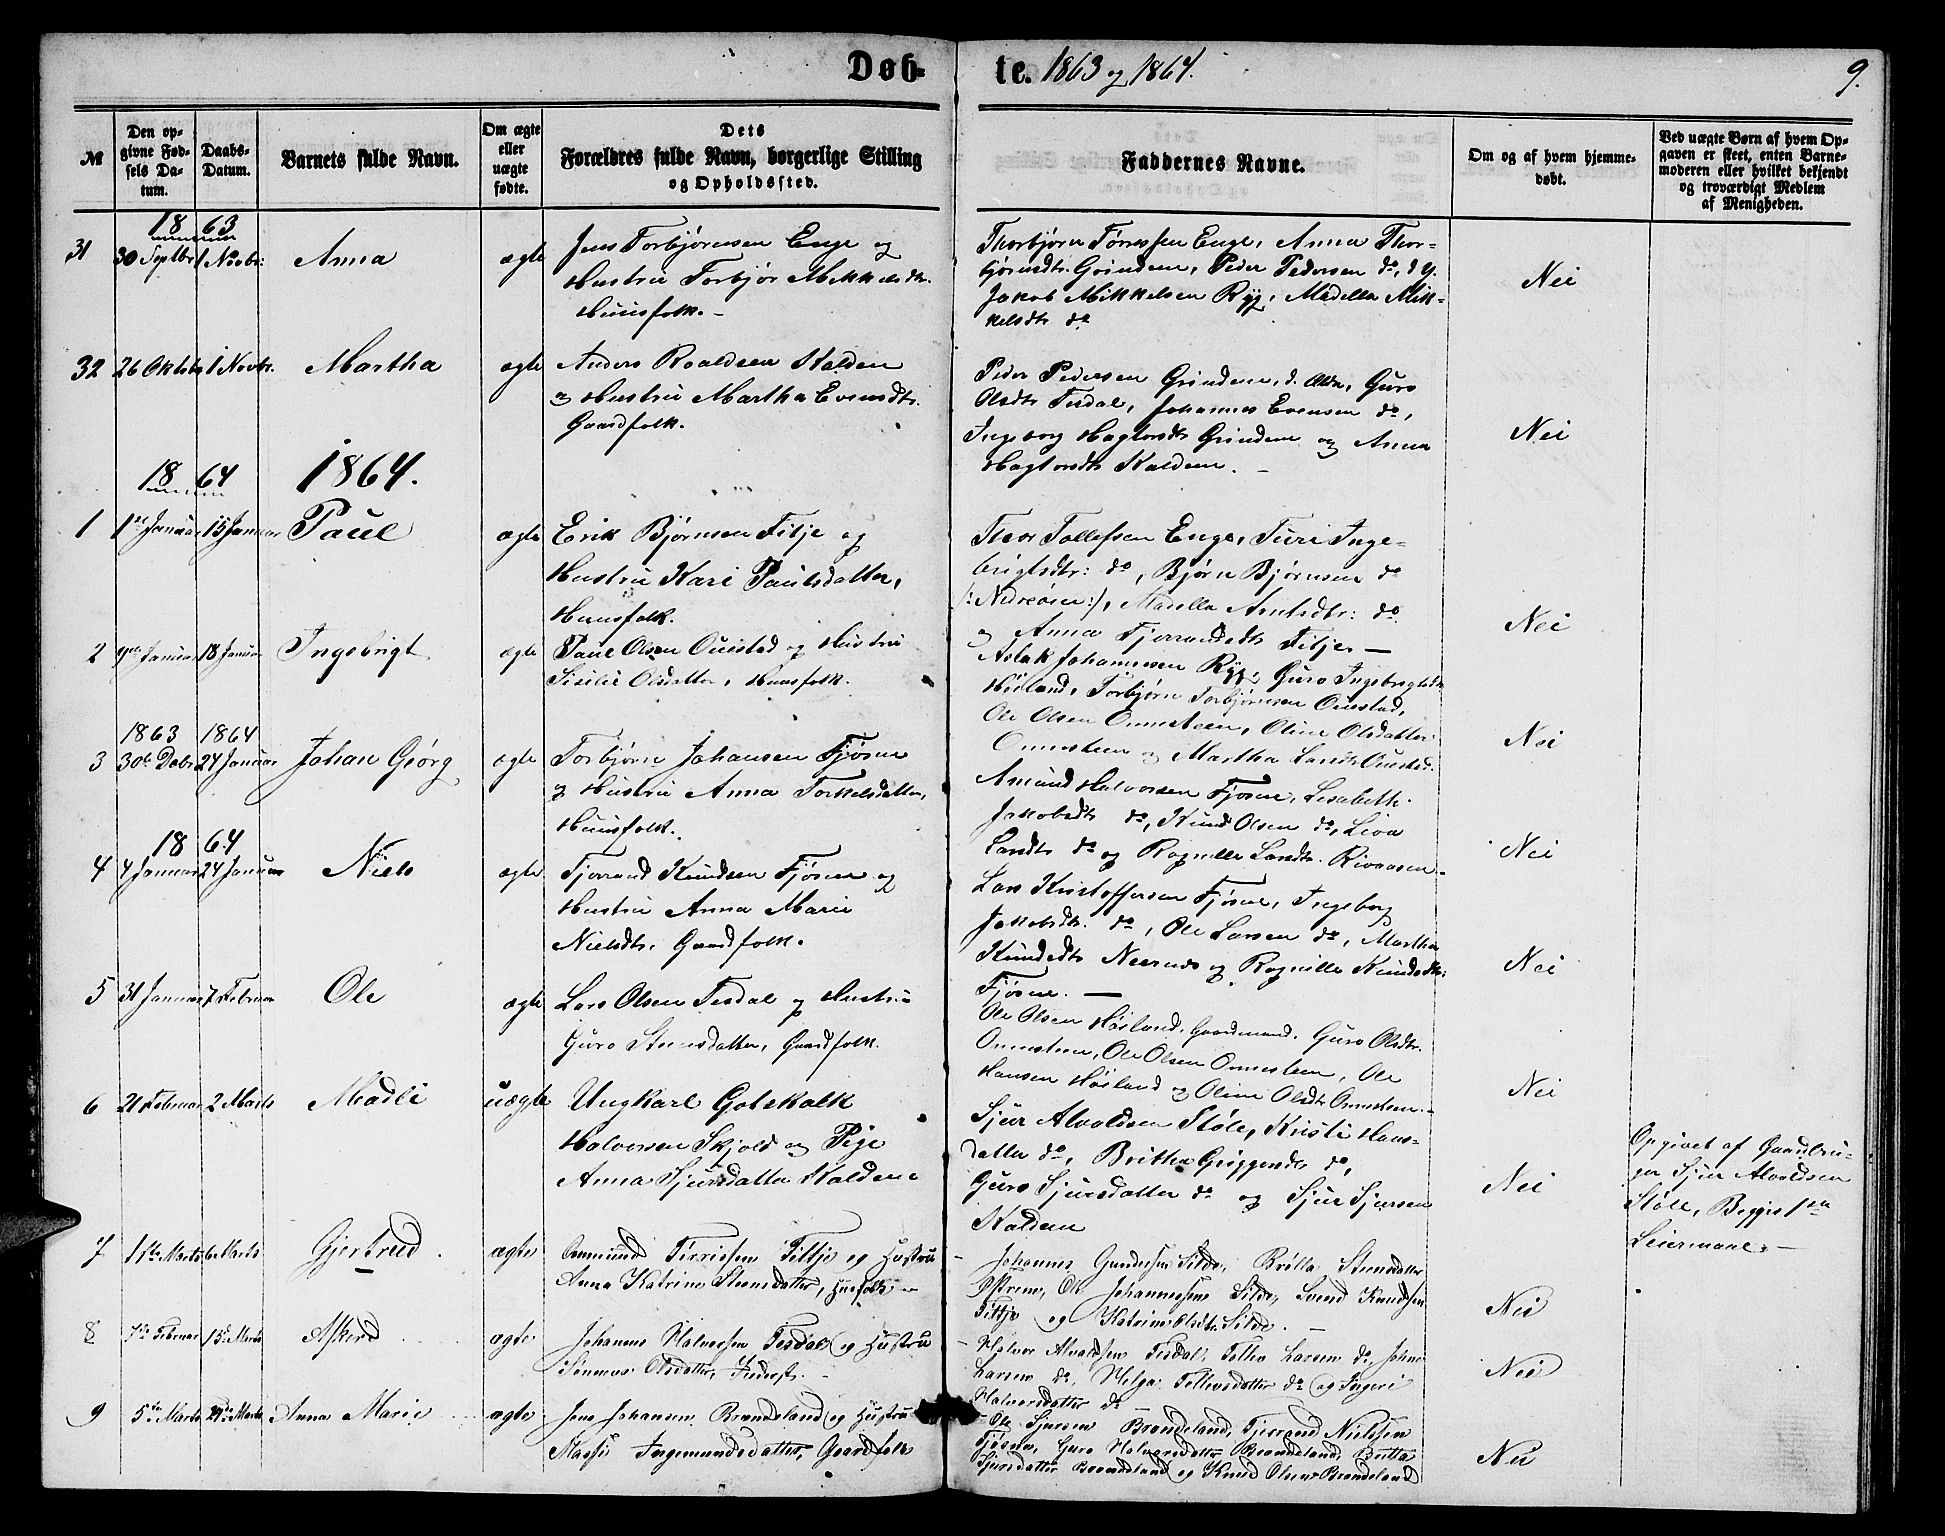 Døb-
te. 1863 og 1864.
9.
№
Den op-
givne Fød-
sels Da-
tum.
Daabs-
Datum.
Barnets fulde Navn.
Om ægte
eller
uægte
fødte.
Dets
Forældres fulde Navn, borgerlige Stilling
og Opholdssted.
Faddernes Navne.
Om og af hvem hjemme-
døbt.
Ved uægte Børn af hvem Op-
gaven er skeet, enten Barne-
moderen eller hvilket bekjendt
og troværdigt Medlem
af Menigheden.
18 63
31 30 Septbr 1 Novbr: Anna ægte
Jens Torbjørnsen Enge og
Hustru Torbjør Mikkelsdtr.
Huusfolk.
Thorbjørn Tørresen Enge, Anna Thor-
bjørnsdtr. Grindem, Peder Pedersen do, d. y.
Jakob Mikkelsen Ryg, Madella Mik-
kelsdtr do
Nei
32 26 Oktbr 1 Novbr. Martha ægte
Anders Roaldsen Kalden
og Hustru Martha Evensdtr.
Gaardfolk.
Peder Pedersen Grindem, d. Ældre, Guro
Olsdtr Tesdal, Johannes Evensen do,
Ingeborg Hagtorsdtr Grindem og Anna
Hagtorsdtr Kaldem.
Nei
18 64
1864.
1 1ste Januar 15 Januar Paul ægte
Erik Bjørnsen Fitje og
Hustru Kari Paulsdatter,
Huusfolk.
Thor Tollefsen Enge, Turi Inge-
brigtsdtr: do, Bjørn Bjørnsen do
/: Nedreåsen :/, Madella Arntsdtr: do
og Anna Fjerrandsdtr Fitje. —
Nei
2 9de Januar 18 Januar Ingebrigt ægte
Paul Olsen Ouestad og Hustru
Sisilie Olsdatter, Huusfolk.
Aslak Johannesen Ryg, Guro Ingebrigtsdtr
Høiland, Torbjørn Torbjørnsen Ouestad,
Ole Olsen Ommesteen, Oline Olsdatter
Ommesteen og Martha Larsdtr Ouestad.
Nei
1863 1864
3 30te Debr 24 Januar Johan Geörg ægte
Torbjørn Johansen Fjøsne
og Hustru Anna Torkelsdatter,
Huusfolk.
Amund Halvorsen Fjøsne, Lisabeth
Jakobsdtr do, Knud Olsen do, Liva
Larsdtr do og Ragnille Larsdtr. Rivaasen
Nei
18 64
4 4 Januar 24 Januar Niels ægte
Fjerrand Knudsen Fjøsne og
Hustru Anna Marie
Nielsdtr. Gaardfolk.
Lars Kristoffersen Fjøsne, Ingeborg
Jakobsdtr. do, Ole Larsen do, Martha
Knudsdtr Neernes og Ragnille Knudsdtr:
Fjøsne. —
Nei
5 31 Januar 7 Februar Ole ægte
Lars Olsen Tesdal og Hustru
Guro Steensdatter, Gaardfolk.
Ole Olsen Høiland, Gaardmand. Guro Olsdtr.
Ommesteen, Ole Olsen Ommesteen, Ole
Hansen Høiland og Oline Olsdtr Ommesteen.
Nei
6 21 Februar 2 Marts Madli uægte
Ungkarl Gotskalk
Halvorsen Skjold og Pige
Anna Sjursdatter Kaldem
Sjur Alvaldsen Støle, Kristi Hans-
datter do, Britha do,
Guro Sjursdatter do og Sjur Sjursen
Kaldem
Nei
Opgivet af Gaardbru-
ger Sjur Alvaldsen
Støle, Begges 1ste
Leiermaal. —
7 1ste Marts 6 Marts Gjertrud. ægte
Ommund Tørrissen Fittje og Hustru
Anna Katrine Steensdatter, Husfolk
Johannes Gundersen Silde, Brølla Steensdatter
Østrem, Ole Johannessen Silde, Svend Knudsen
Fittje og Katrine Olsdtr Silde. —
Nei
8 7de Februar 13de Marts Askerd ægte
Johannes Halvorsen Tesdal og Hustru
Sønneva Olsdatter, Inderst.
Halvor Alvaldsen Tesdal, Tollev Larsen do, Johne
Larsen do, Helga Tollevsdatter do og Ingeri
Halvorsdatter do
Nei
9 5te Marts Marts Anna Marie ægte
Jens Johansen Brandeland og Hustru
Massi Ingemundsdatter, Gaardfolk
Ole Sjursen Brandeland, Fjerrand Nielssen
Fjøsne, Guro Halvorsdatter Brandeland, Britta
Sjursdatter Brandeland og Knud Olsen Brandeland
Nei